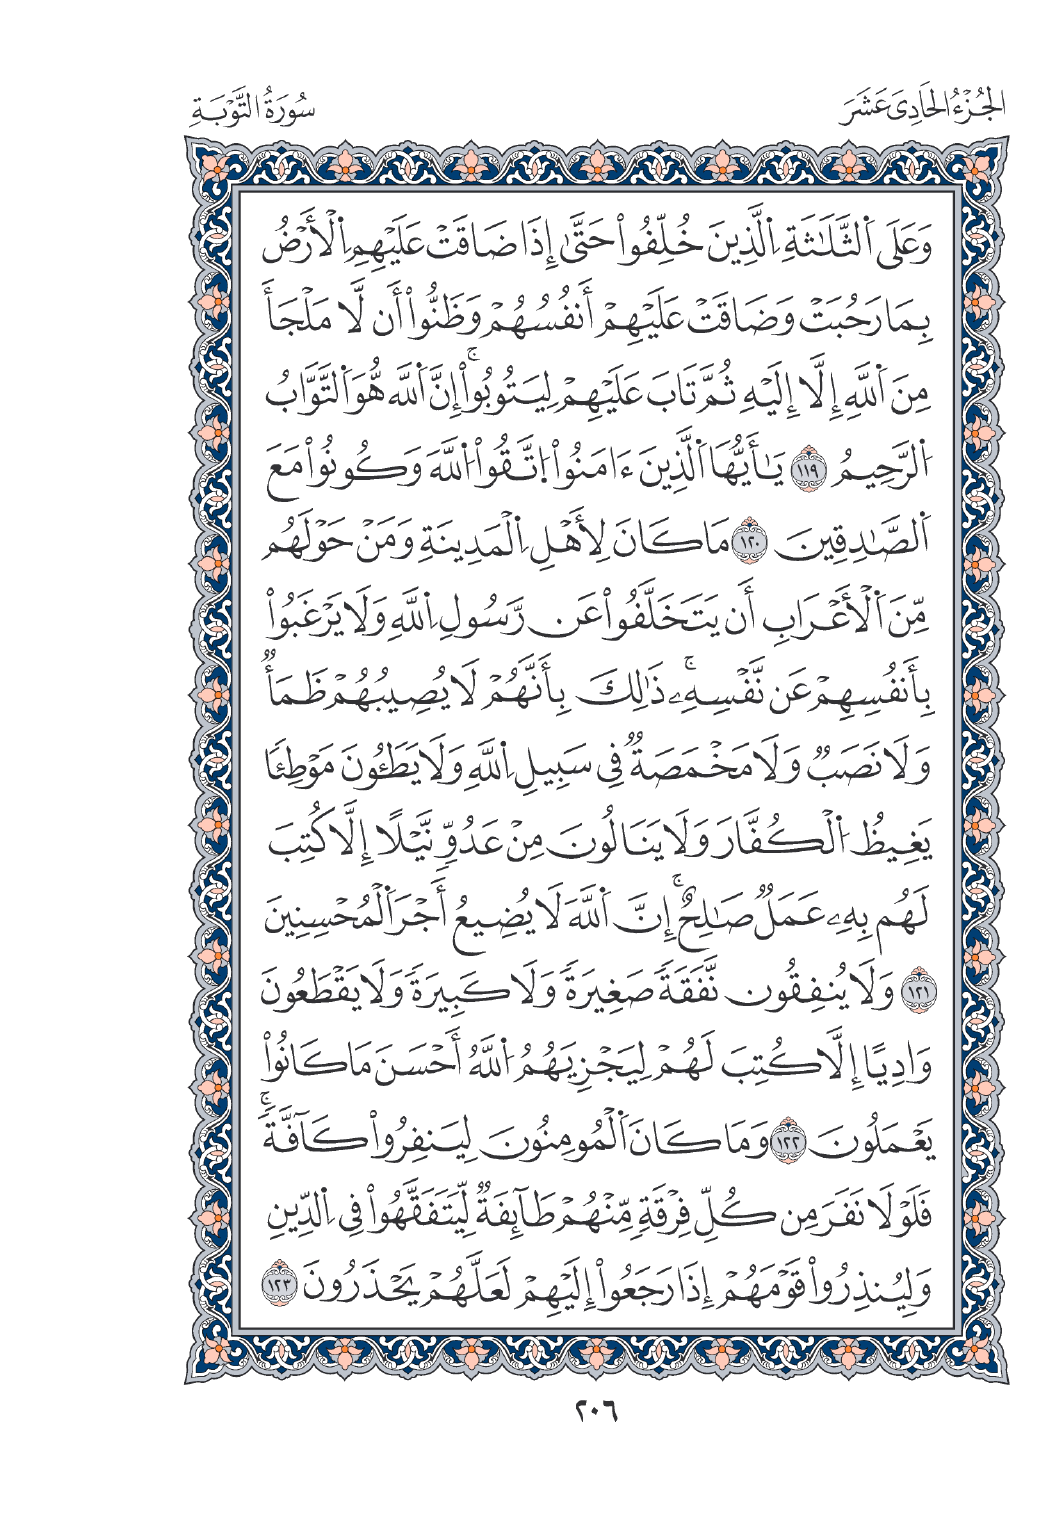 الجُزْءُ الحَادِىَ عَشَرَ
سُورَةُ التَّوْبَةِ
وَعَلَى اَ۬لثَّلَٰثَةِ اِ۬لَّذِينَ خُلِّفُواْ حَتَّىٰ إِذَا ضَاقَتْ عَلَيْهِمِ اِ۬لْأَرْضُ
بِمَا رَحُبَتْ وَضَاقَتْ عَلَيْهِمْ أَنفُسُهُمْ وَظَنُّواْ أَن لَّا مَلْجَأَ
مِنَ اَ۬للَّهِ إِلَّا إِلَيْهِ ثُمَّ تَابَ عَلَيْهِمْ لِيَتُوبُواْۚ إِنَّ اَ۬للَّه هُّوَ اَ۬لتَّوَّابُ
اُ۬لرَّحِيمُ ١١٩ يَٰأَيُّهَا اَ۬لَّذِينَ ءَامَنُواْ اُ۪تَّقُواْ اُ۬للَّهَ وَكُونُواْ مَعَ
اَ۬لصَّٰدِقِينَ ١٢٠ مَا كَانَ لِأَهْلِ اِ۬لْمَدِينَةِ وَمَنْ حَوْلَهُم
مِّنَ اَ۬لْأَعْرَابِ أَن يَتَخَلَّفُواْ عَن رَّسُولِ اِ۬للَّهِ وَلَا يَرْغَبُواْ
بِأَنفُسِهِمْ عَن نَّفْسِهِۦۚ ذَٰلِكَ بِأَنَّهُمْ لَا يُصِيبُهُمْ ظَمَأٞ
وَلَا نَصَبٞ وَلَا مَخْمَصَةٞ فِي سَبِيلِ اِ۬للَّهِ وَلَا يَطَـُٔونَ مَوْطِئٗا
يَغِيظُ اُ۬لْكُفَّارَ وَلَا يَنَالُونَ مِنْ عَدُوّٖ نَّيْلًا إِلَّا كُتِبَ
لَهُم بِهِۦ عَمَلٞ صَٰلِحٌۚ إِنَّ اَ۬للَّهَ لَا يُضِيعُ أَجْرَ اَ۬لْمُحْسِنِينَ
١٢١ وَلَا يُنفِقُون نَّفَقَةٗ صَغِيرَةٗ وَلَا كَبِيرَةٗ وَلَا يَقْطَعُونَ
وَادِيًا إِلَّا كُتِبَ لَهُمْ لِيَجْزِيَهُمُ اُ۬للَّهُ أَحْسَنَ مَا كَانُواْ
يَعْمَلُونَ ١٢٢ وَمَا كَانَ اَ۬لْمُومِنُونَ لِيَنفِرُواْ كَآفَّةٗۚ
فَلَوْلَا نَفَرَ مِن كُلِّ فِرْقَةٖ مِّنْهُمْ طَآئِفَةٞ لِّيَتَفَقَّهُواْ فِي اِ۬لدِّينِ
وَلِيُنذِرُواْ قَوْمَهُمْ إِذَا رَجَعُواْ إِلَيْهِمْ لَعَلَّهُمْ يَحْذَرُونَ ١٢٣
٢٠٦